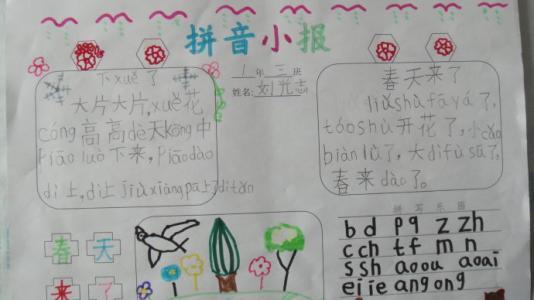 拼音小报
1年三班
姓名:刘光志
下xuě了
大片大片,xuě花
cóng高高dè天kōng中
Piāo luò下来,Piāodào
dì上,dì上jiù xiàng pū上了dì tǎn
春天来了
liǔshù fā yá了,
táoshù开花了,小cǎo
biàn lǜ了,大dì fù sū了,
春来dào了。
春天
来了
拼写乐园
b d p q z zh
c ch t f m n
s sh ao ou ao ai
ei ie ang ong